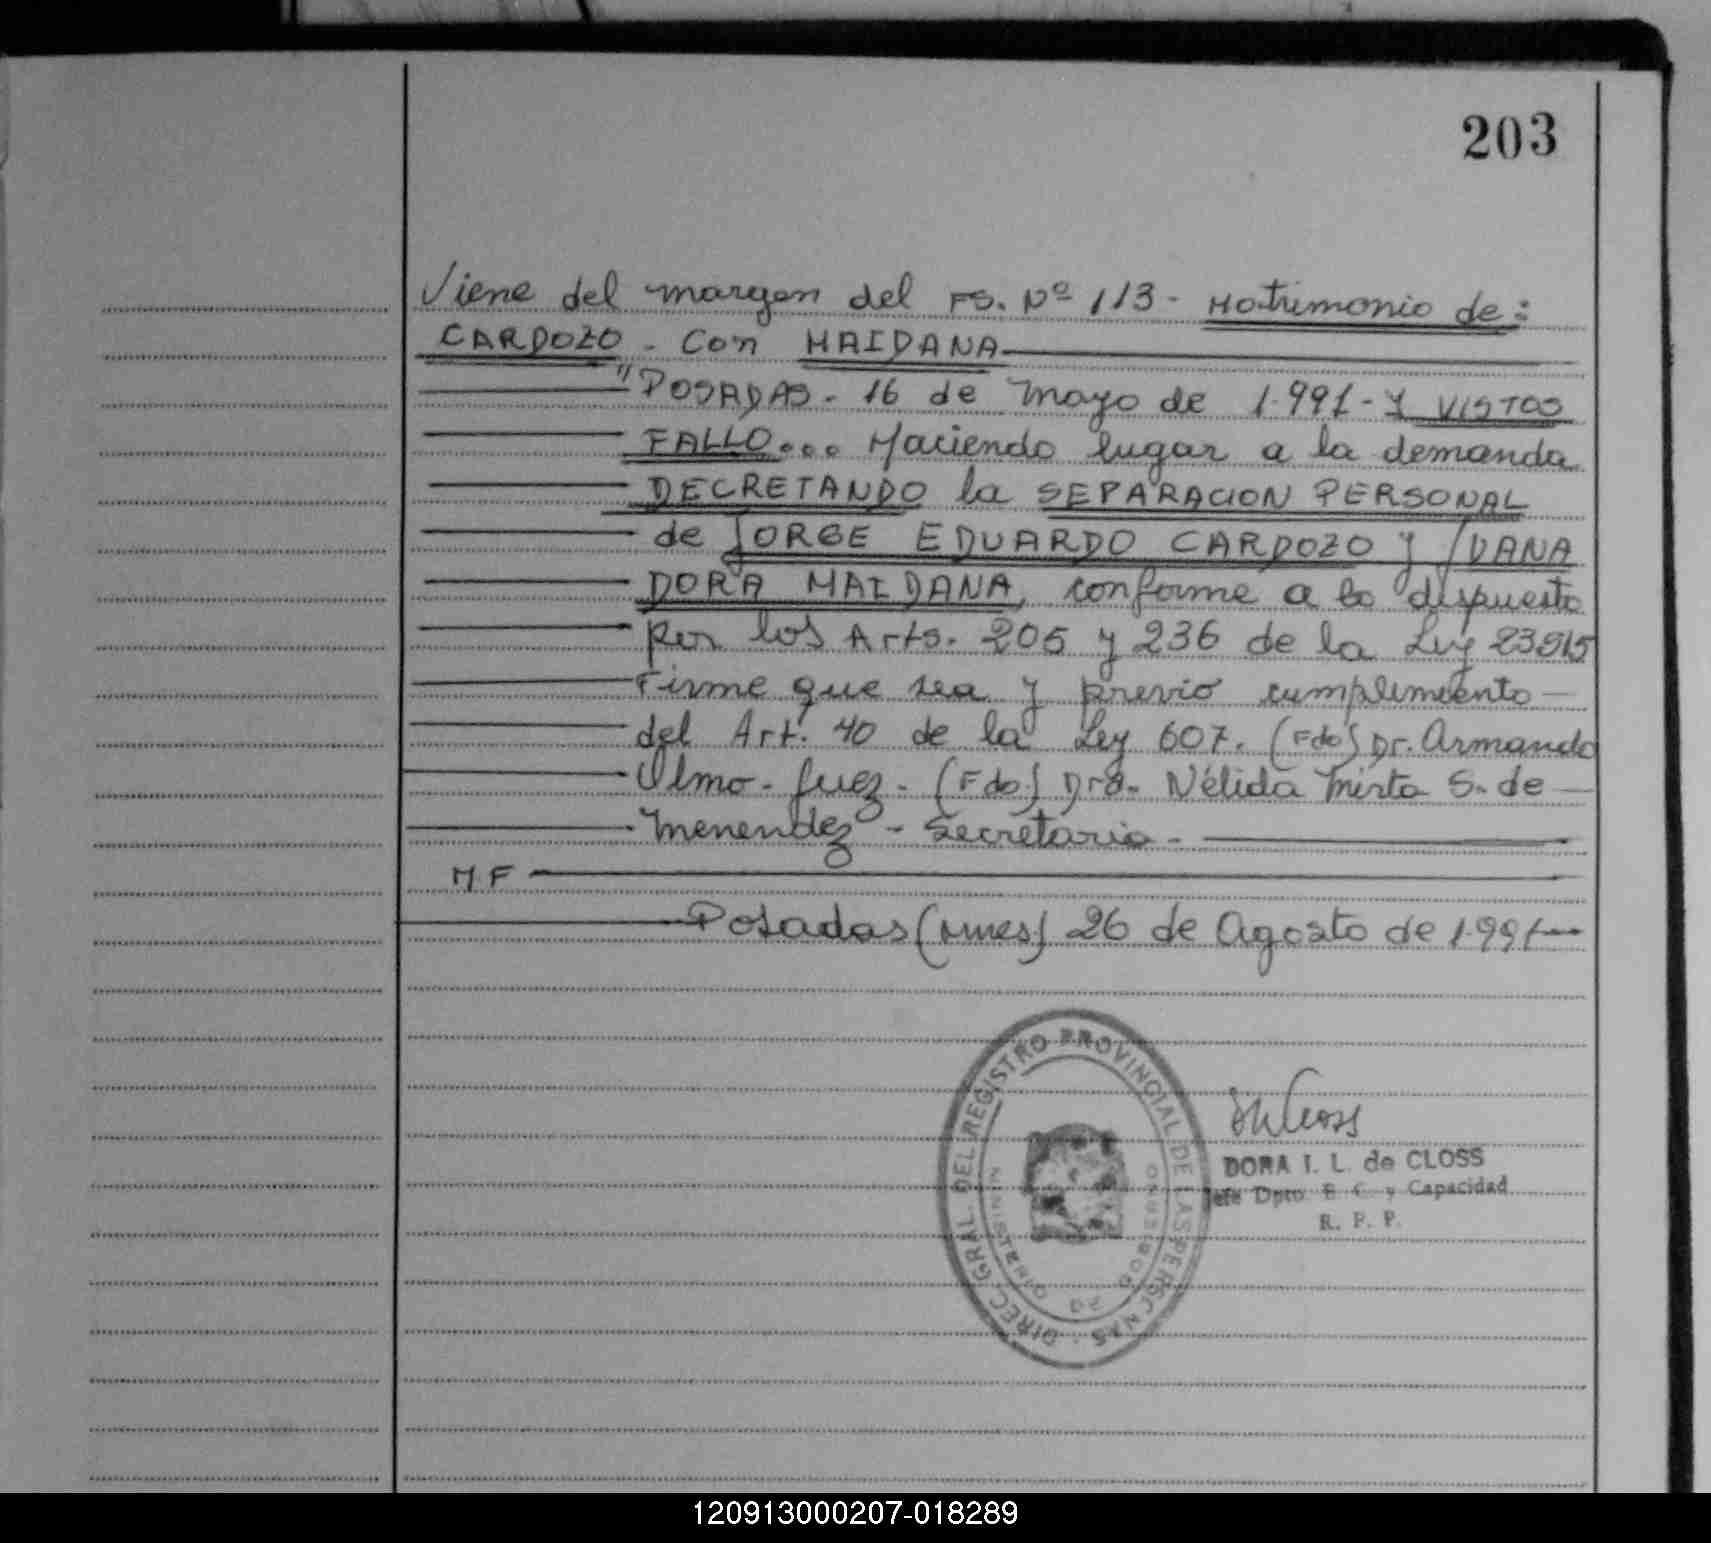 203
Viene del margen del FS. Nº 113 - Matrimonio de:
CARDOZO - Con MAIDANA
"POSADAS. 16 de Mayo de 1.991 - Y VISTOS
FALLO... Haciendo lugar a la demanda
DECRETANDO la SEPARACION PERSONAL
de JORGE EDUARDO CARDOZO y IVANA
DORA MAIDANA, conforme a lo dispuesto
por los Arts. 205 y 236 de la Ley 23515
Firme que sea y previo cumplimiento
del Art. 40 de la Ley 607. (Fdo) Dr. Armando
Ulmo - Juez - (Fdo) Dra. Nélida Mirta S. de
Menendez - Secretaria -
M F
Posadas (Mnes) 26 de Agosto de 1.991
DIREC. GRAL. DEL REGISTRO PROVINCIAL DE LAS PERSONAS
DORA I. L. de CLOSS
Jefe Dpto E. C. y Capacidad
R. P. P.
120913000207-018289